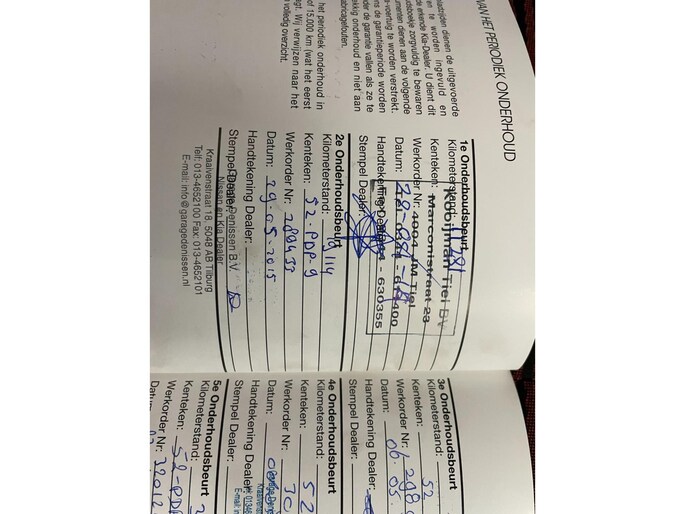 VAN HET PERIODIEK ONDERHOUD
dienen de uitgevoerde
en te worden ingevuld en
de erkende Kia-Dealer. U dient dit
zorgvuldig te bewaren
dienen aan de volgende
te worden verstrekt.
de garantieperiode worden
de garantie vallen als ze te
onderhoud en niet aan
het periodiek onderhoud in
of 15.000 km (wat het eerst
Wij verwijzen naar het
volledig overzicht.
1e Onderhoudsbeurt
Kilometerstand:
Kenteken:
Werkorder Nr:
Datum:
Handtekening Dealer:
Stempel Dealer:
Kooijman Tiel BV
Marconistraat 23
4004 JM Tiel
630355
2e Onderhoudsbeurt
Kilometerstand:
Kenteken: 52-PDP-9
Werkorder Nr: 289439
Datum: 29-05-2015
Handtekening Dealer:
Stempel Dealer:
Garage Denissen B.V.
Nissan en Kia Dealer
Kraaivenstraat 18, 5048 AB Tilburg
Telf: 013-4652100 Fax: 013-4652101
E-mail: info@garagedenissen.nl
3e Onderhoudsbeurt
Kilometerstand:
Kenteken: 52
Werkorder Nr:
Datum: 06.05.
Handtekening Dealer:
Stempel Dealer:
4e Onderhoudsbeurt
Kilometerstand:
Kenteken: 52
Werkorder Nr: 30
Datum:
Handtekening Dealer:
Stempel Dealer:
5e Onderhoudsbeurt
Kilometerstand:
Kenteken: 52-PDP
Werkorder Nr: 32012